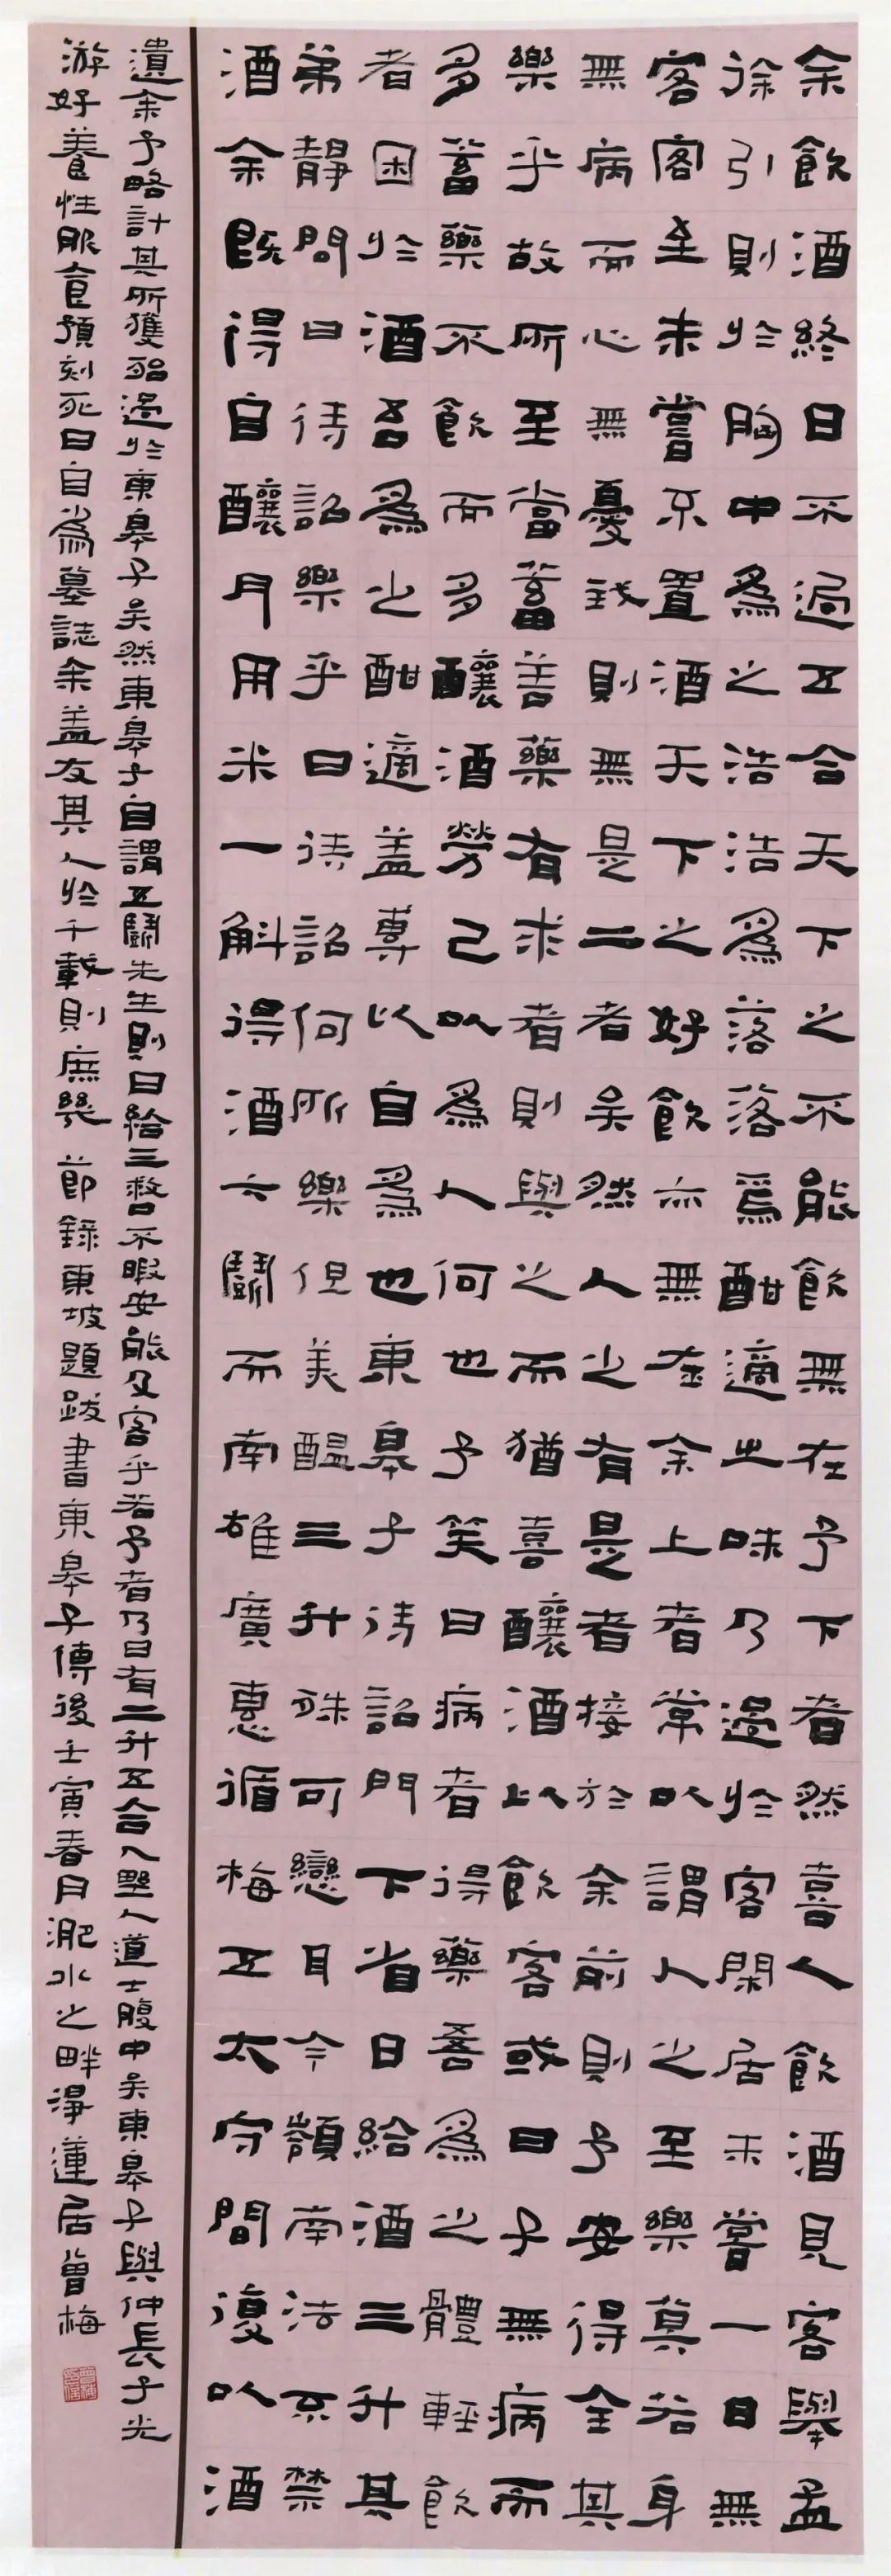 余飲酒終日不過五合天下之不能飲無在予下者然喜人飲酒見客舉盃
徐引則於胸中爲之浩浩爲落落焉酣適之味乃過於客閑居未嘗一日無
客客至未嘗不置酒天下之好飲亦無在余上者常以謂人之至樂莫若身
無病而心無憂我則無是二者矣然人之有是者接於余前則予安得全其
樂乎故所至當蓄善藥有求者則與之而猶喜釀酒以飲客或曰子無病而
多蓄藥不飲而多釀酒勞己以爲人何也予笑曰病者得藥吾爲之體輕飲
者困於酒吾爲之酣適盖專以自爲也東皋子待詔門下省日給酒三升其
弟靜問曰待詔樂乎曰待詔何所樂但美醖三升殊可戀耳今嶺南法不禁
酒余既得自釀月用米一斛得酒六鬭而南雄廣惠循梅五太守間復以酒
遺余予略計其所獲殆過於東皋子矣然東皋子自謂五鬭先生則日給三救口不暇安能及客乎若予者乃日有二升五合入野人道士腹中矣東皋子與仲長子光
游好養性服食預刻死日自爲墓誌余盖友其人於千載則庶幾 節錄東坡題跋書東皋子傳後壬寅春月淝水之畔淨蓮居曾梅